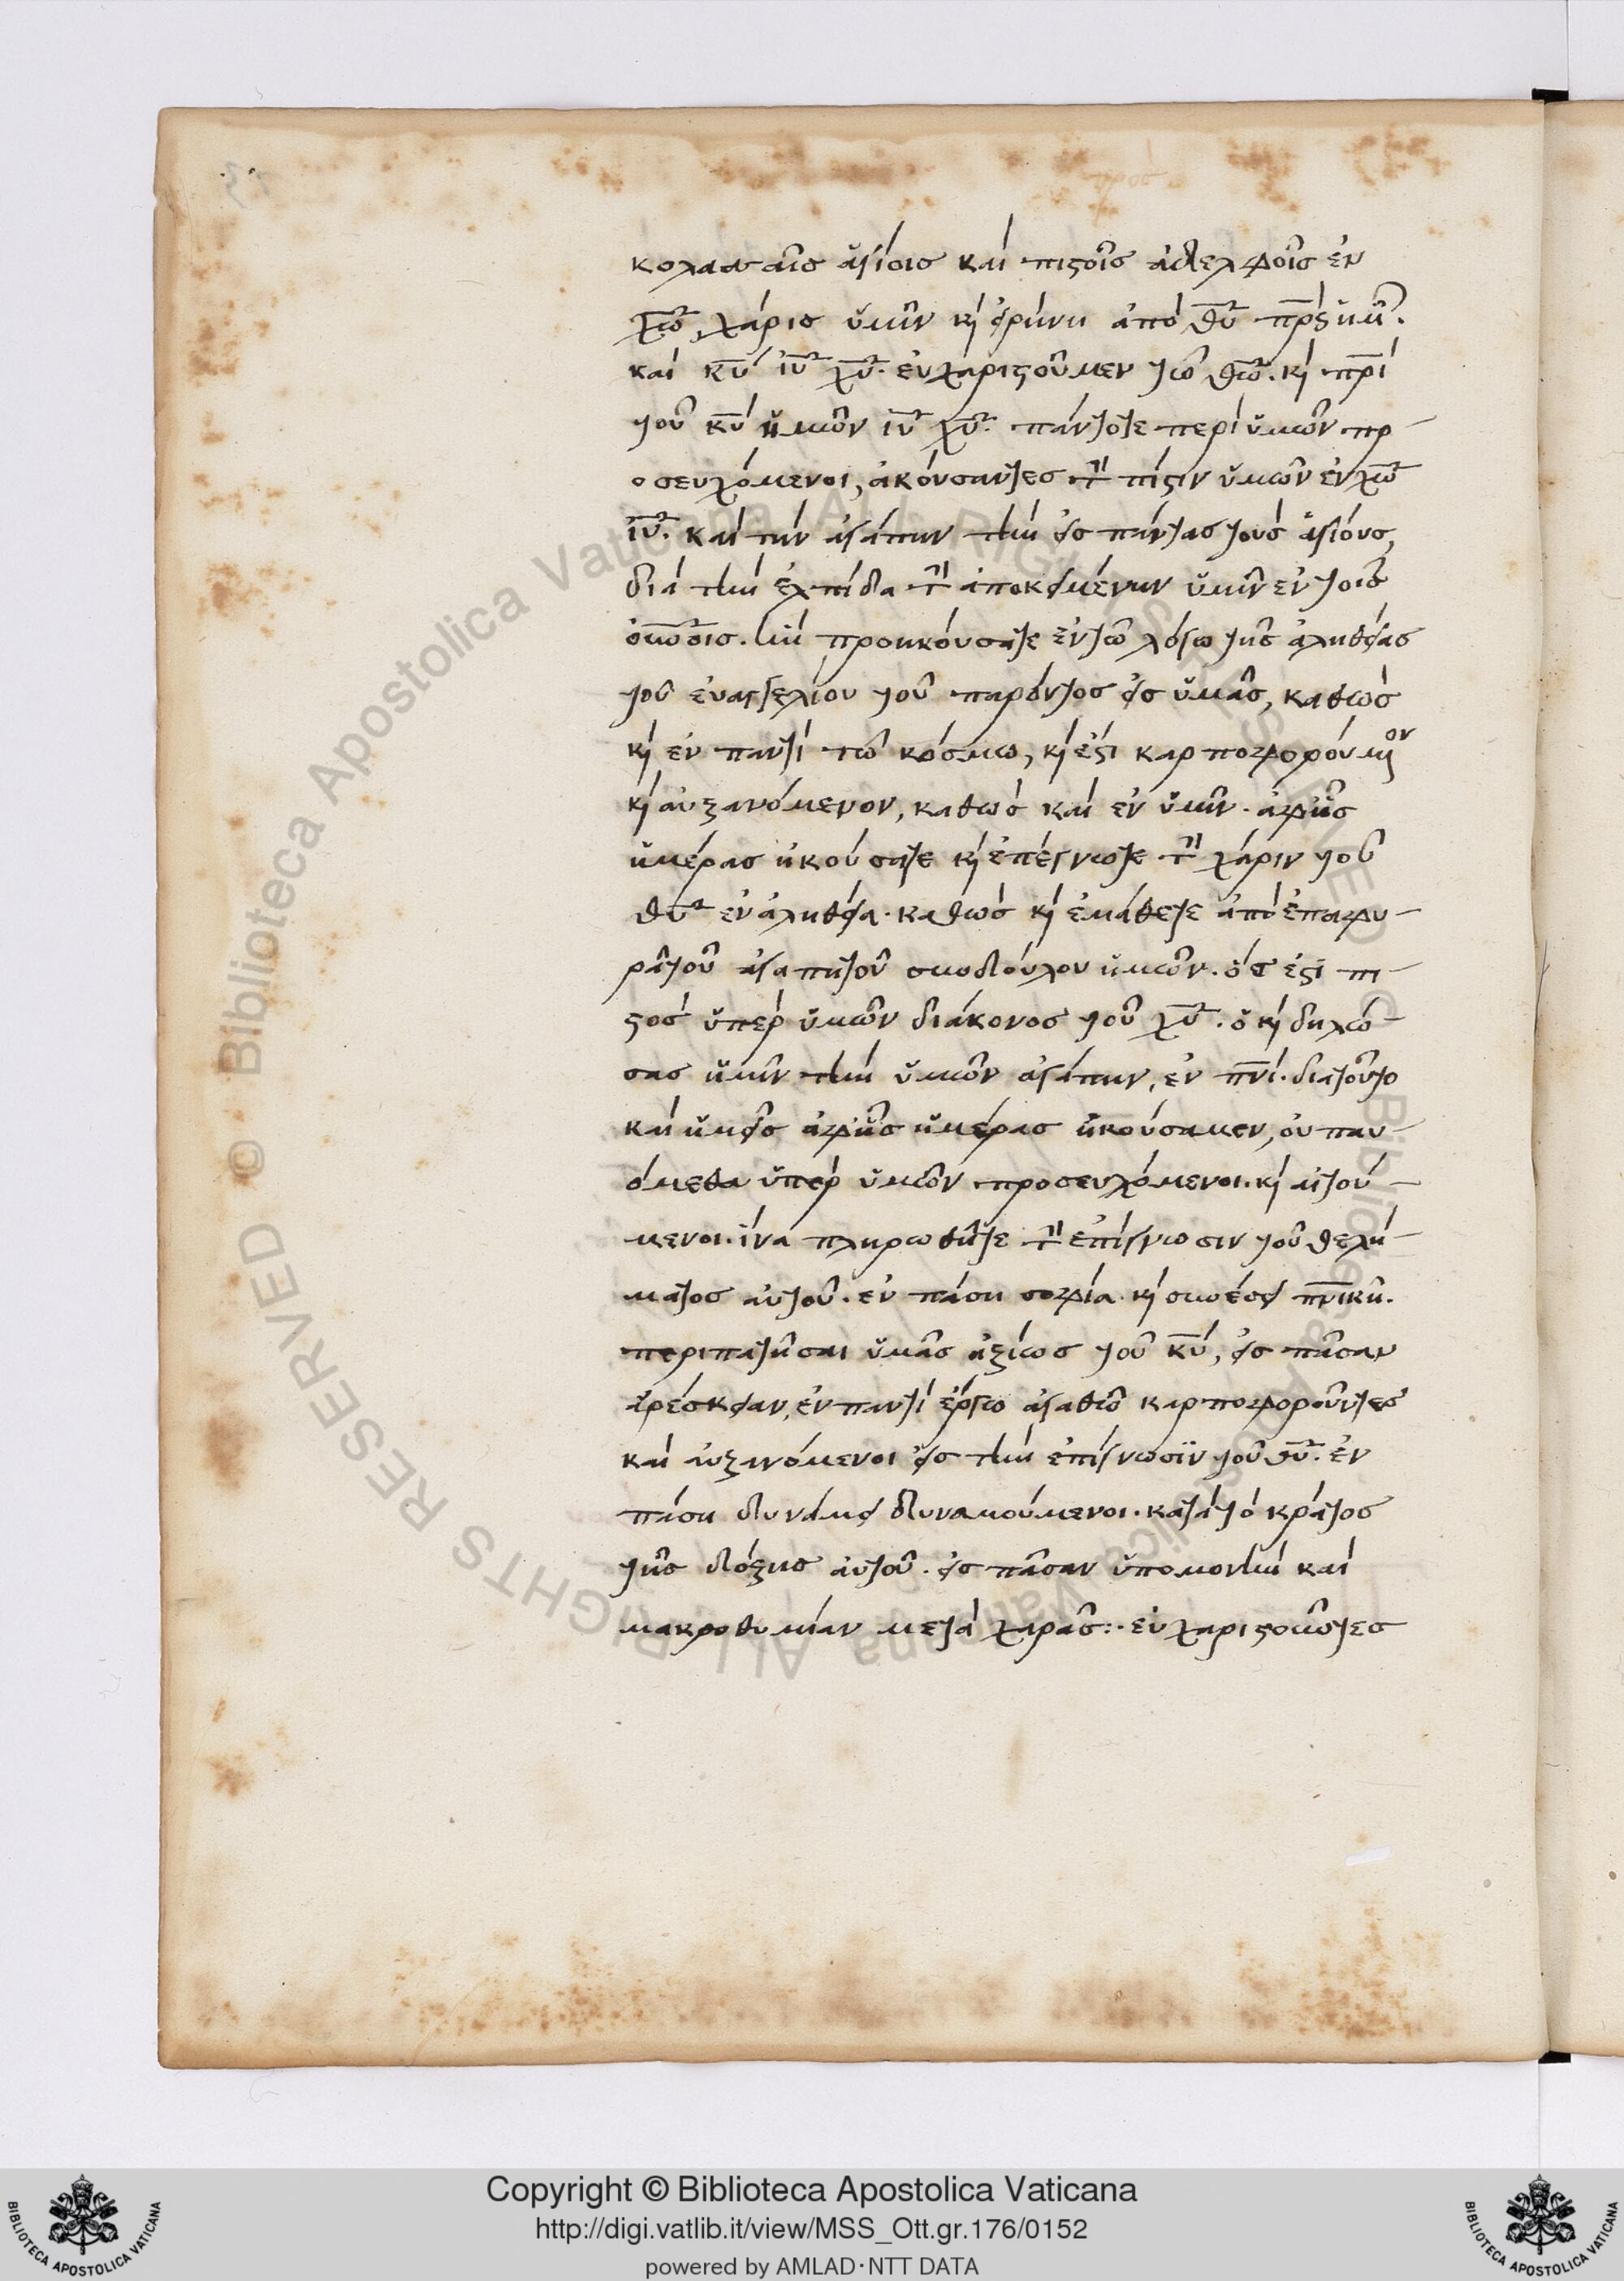 κολασσαῖσ ἁγίοισ καὶ πιστοῖσ ἀδελφοῖσ ἐν
χω̅, χάρισ ὑμῖν κ̀ εἰρήνη ἀπὸ θυ̅ πρ̅ς ἡμῶ̅.
καὶ κυ̅ ιυ̅ χυ̅. εὐχαριστοῦμεν τῶ θω̅. κ̀ πρ̅ι
τοῦ κυ̅ ἡμῶν ιυ̅ χυ̅. πάντοτε περὶ ὑμῶν πρ-
οσευχόμενοι, ἀκούσαντεσ τὴν πίστιν ὑμῶν ἐν χω̅
ιυ̅. καὶ τὴν ἀγάπην τὴν εἰσ πάντασ τοὺσ ἁγίουσ,
διὰ τὴν ἐλπίδα τὴν ἀποκειμένην ὑμῖν ἐν τοῖσ
οὐνοῖσ. ἣν προηκούσατε ἐν τῶ λόγω τῆσ ἀληθείασ
τοῦ εὐαγγελίου τοῦ παρόντοσ εἰσ ὑμᾶσ, καθὼσ
κ̀ ἐν παντὶ τῶ κόσμω, κ̀ ἐστὶ καρποφορούμενον
κ̀ αὐξανόμενον, καθὼσ καὶ ἐν ὑμῖν. ἀφῆσ
ἡμέρασ ἠκούσατε κ̀ ἐπέγνωτε τὴν χάριν τοῦ
θυ̅ ἐν ἀληθεία. καθὼσ κ̀ ἐμάθετε ἀπὸ ἐπαφυ-
ρᾶ τοῦ ἀγαπητοῦ συνδούλου ἡμῶν. ὅσ ἐστὶ πι-
στὸσ ὑπὲρ ὑμῶν διάκονοσ τοῦ χυ̅. ὁ κ̀ δηλώ-
σασ ἡμῖν τὴν ὑμῶν ἀγάπην, ἐν πν̅ι. διατοῦτο
καὶ ἡμεῖσ ἀφῆσ ἡμέρασ ἠκούσαμεν, οὐ παυ-
όμεθα ὑπὲρ ὑμῶν προσευχόμενοι. κ̀ αἰτού-
μενοι. ἵνα πληρωθῆτε τὴν ἐπίγνωσιν τοῦ θελή-
ματοσ αὐτοῦ. ἐν πάση σοφία. κ̀ συνέσει πν̅ικῆ.
περιπατῆσαι ὑμᾶσ ἀξίωσ τοῦ κυ̅, εἰσ πᾶσαν
ἀρέσκειαν, ἐν παντὶ ἔργω ἀγαθῶ καρποφοροῦντεσ
καὶ αὐξανόμενοι εἰσ τὴν ἐπίγνωσϊν τοῦ θυ̅. ἐν
πάση δυνάμει δυναμούμενοι. κατὰ τὸ κράτοσ
τῆσ δόξησ αὐτοῦ. εἰσ πᾶσαν ὑπομονὴν καὶ
μακροθυμίαν μετὰ χαρᾶσ:. εὐχαριστοῦντεσ
Copyright © Biblioteca Apostolica Vaticana
http://digi.vatlib.it/view/MSS_Ott.gr.176/0152
powered by AMLAD·NTT DATA